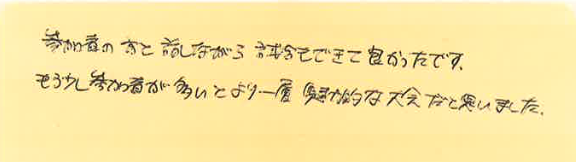 参加者の方と話しながら試合もできて良かったです。
もう少し参加者が多いとより一層魅力的な大会だと思いました。